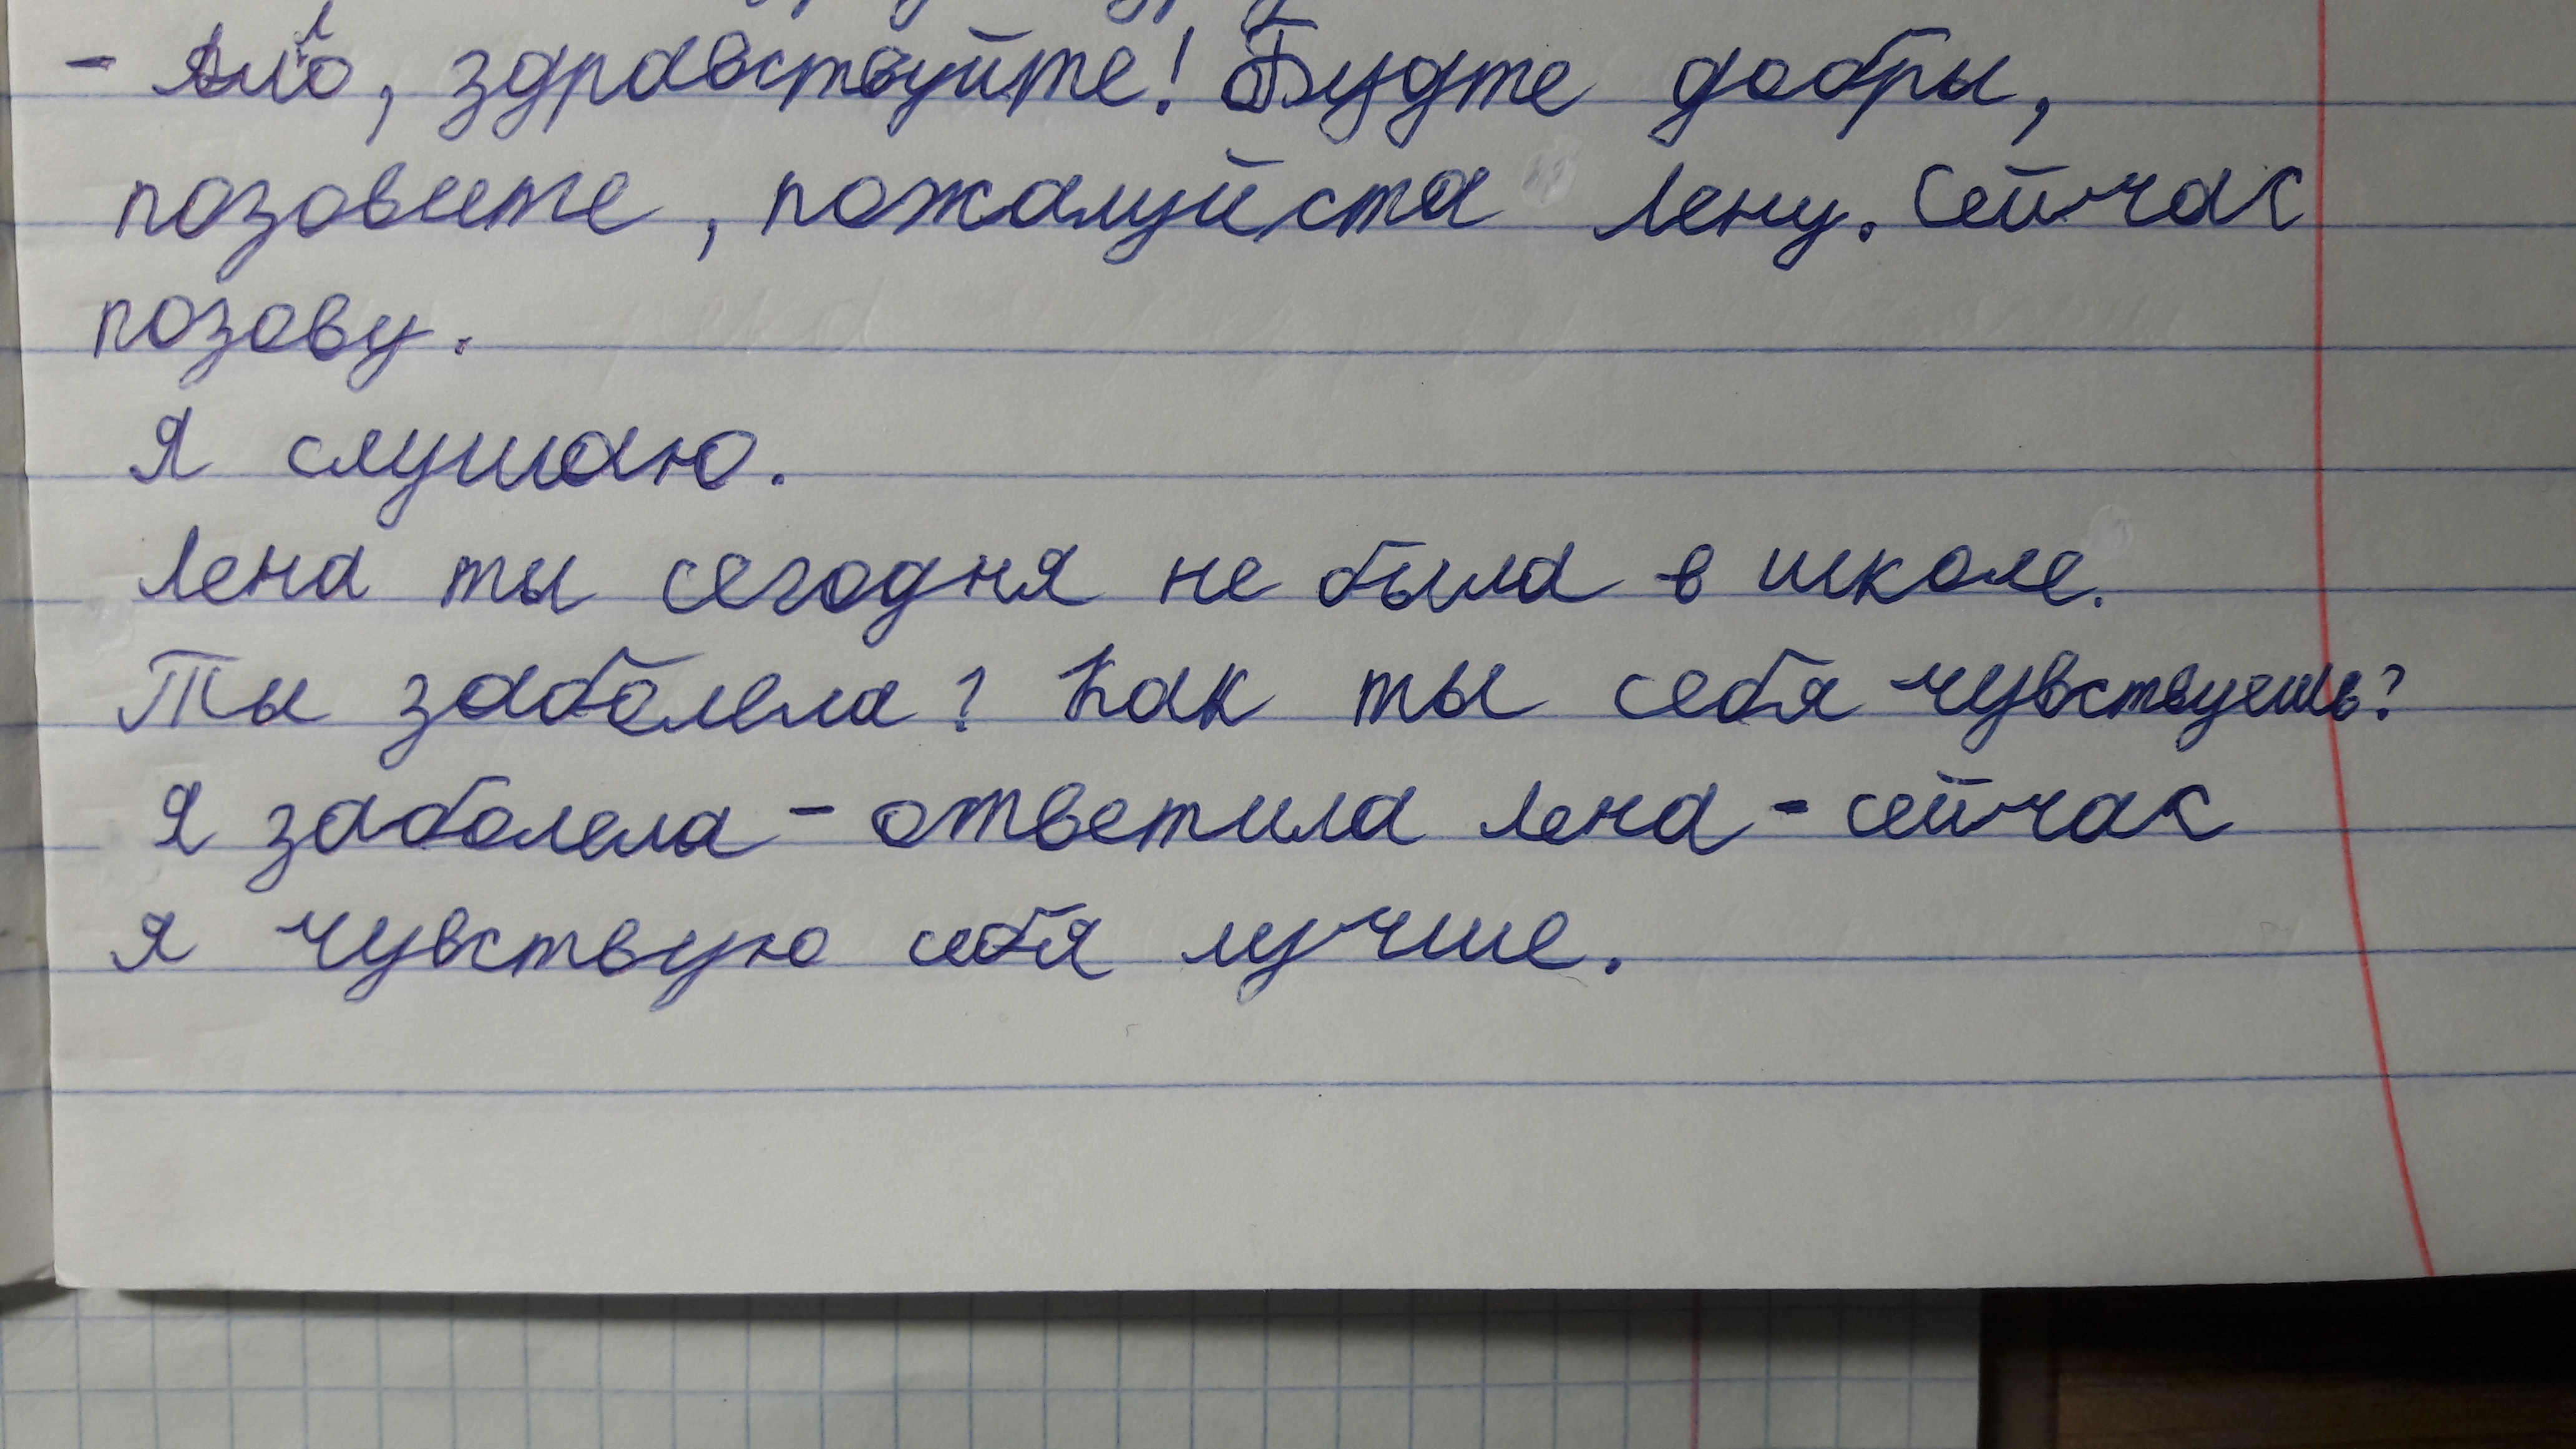 - Алло, здравствуйте! Будте добры,
позовите, пожалуйста Лену. Сейчас
позову.
Я слушаю.
Лена ты сегодня не была в школе.
Ты заболела? Как ты себя чувствуешь?
Я заболела - ответила Лена - сейчас
я чувствую себя лучше.